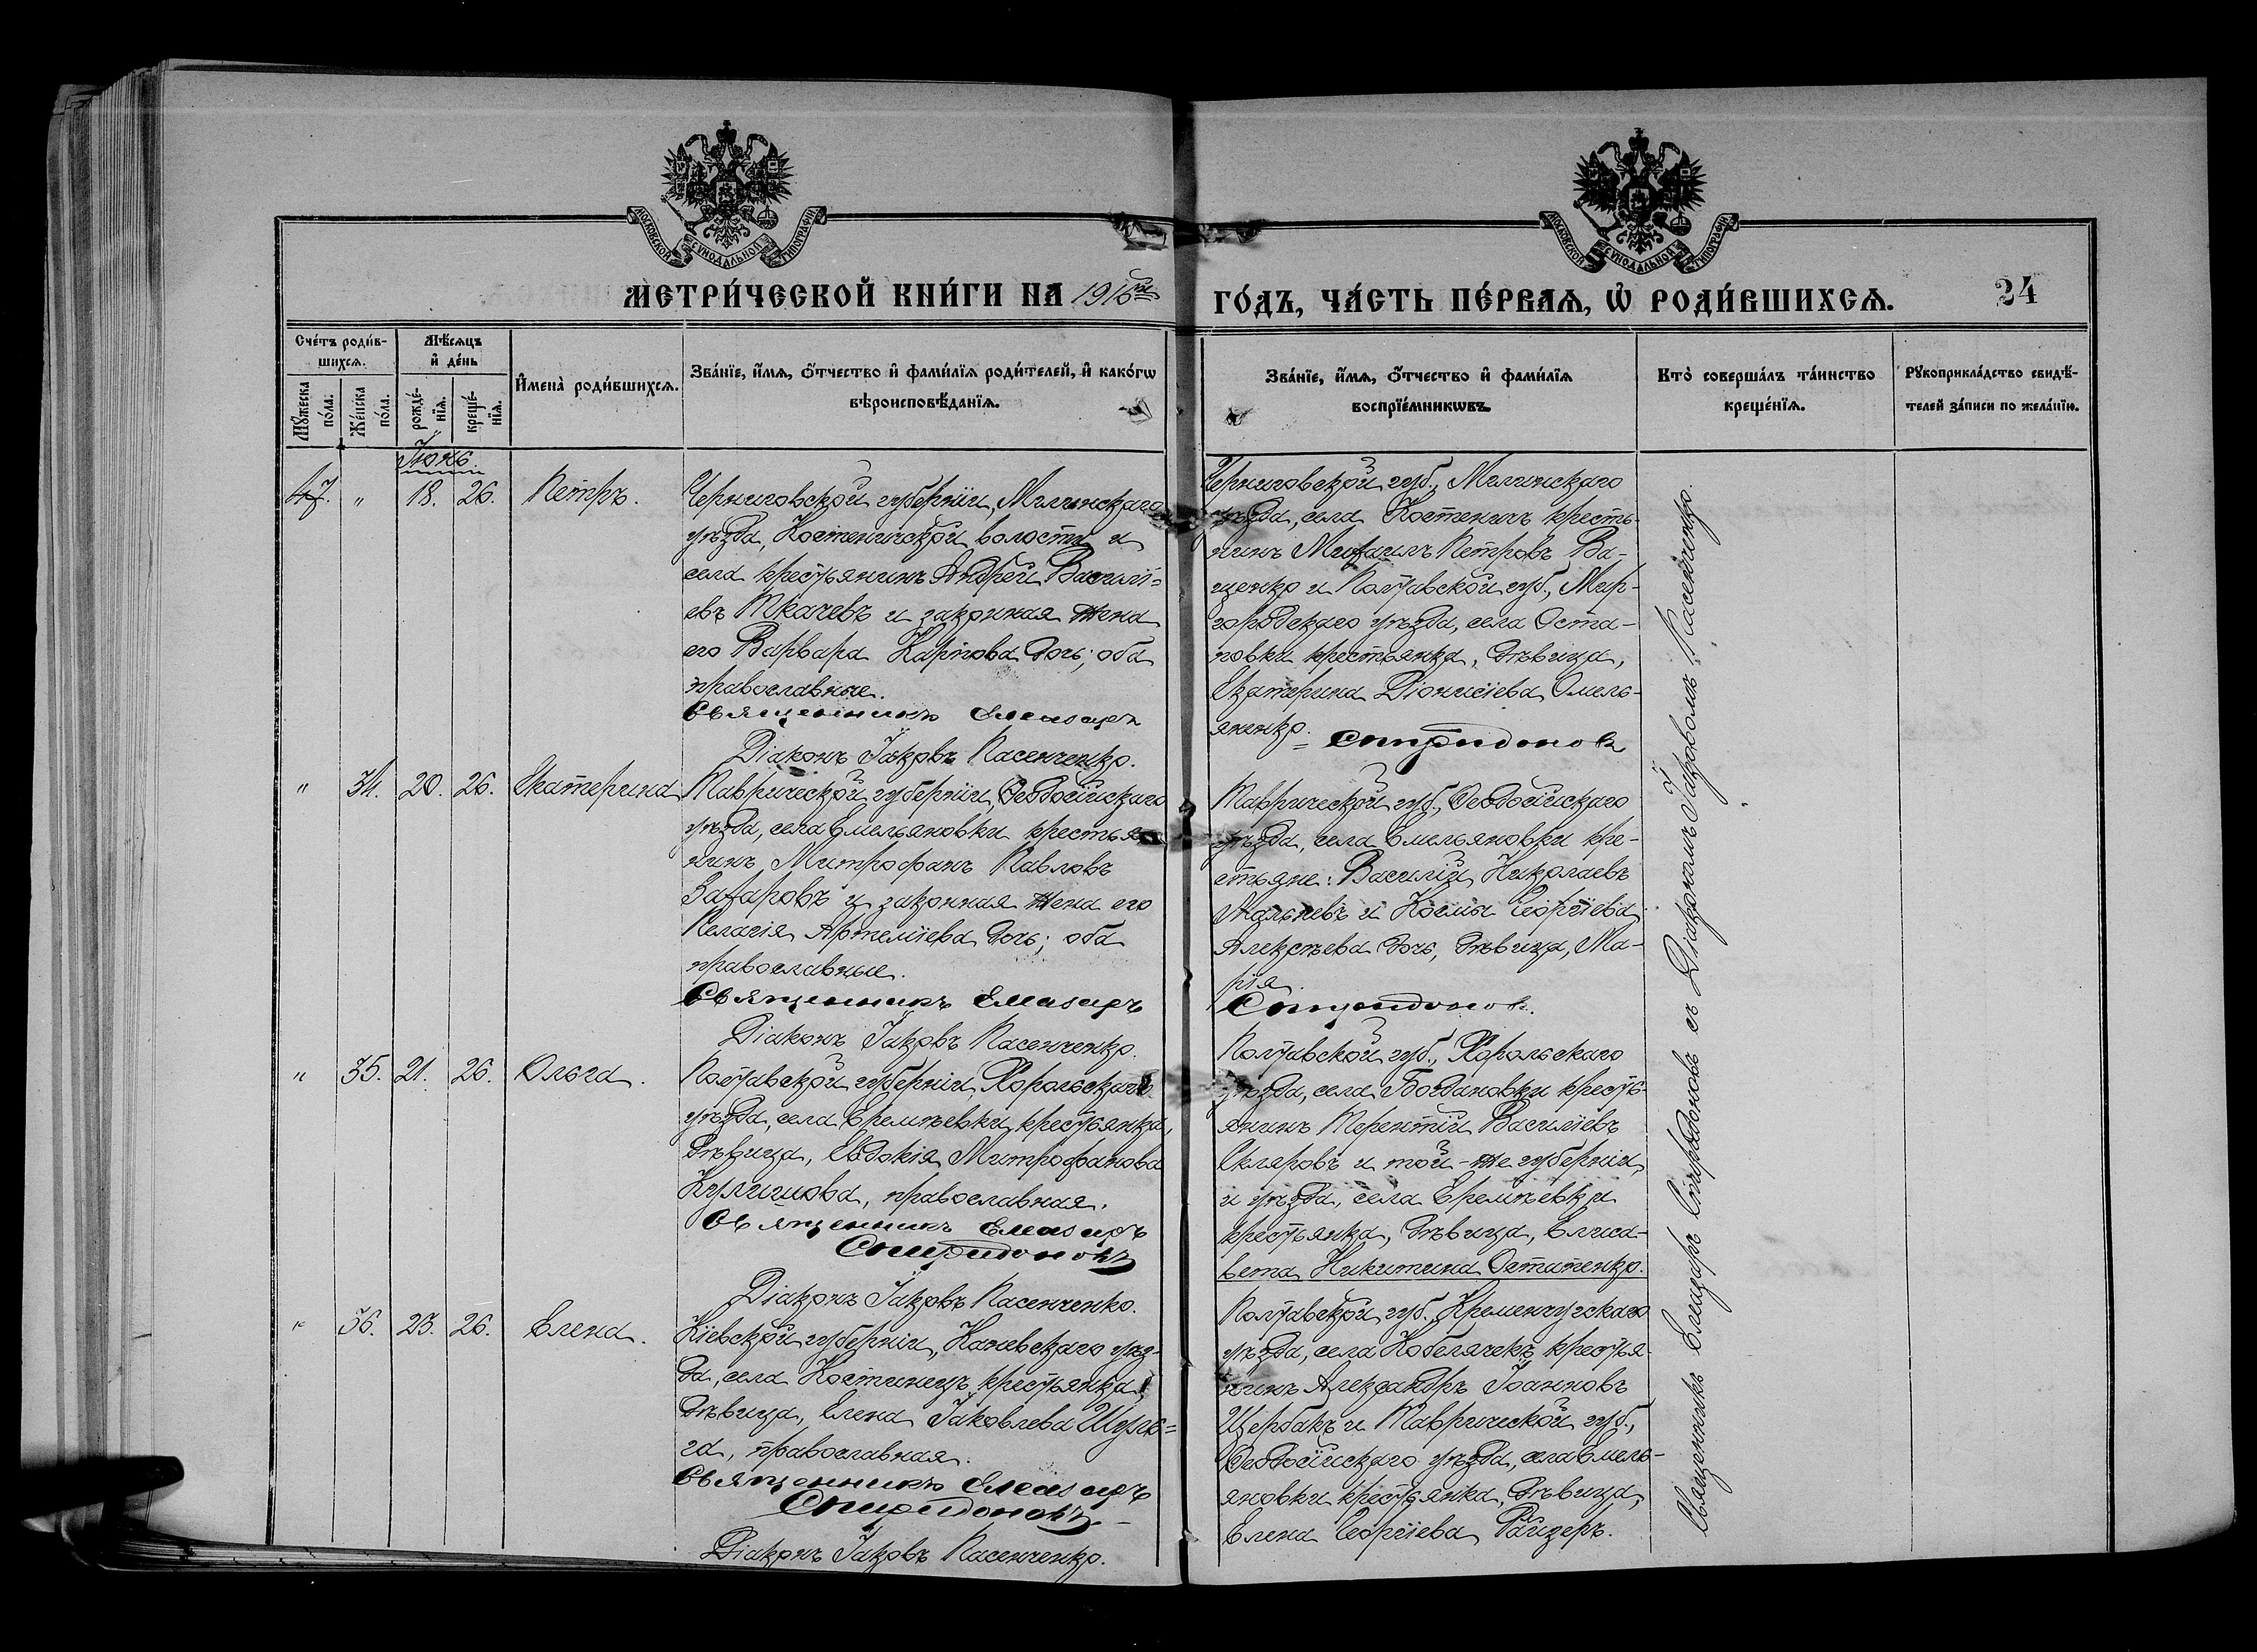 МОСКОВСКОЙ СѴНОДАЛЬНОЙ ТИПОГРАФІИ
МОСКОВСКОЙ СѴНОДАЛЬНОЙ ТИПОГРАФІИ
МЕТРИ́ЧЕСКОЙ КНИ́ГИ НА 1916й
ГО́ДЪ, ЧА́СТЬ ПЕ́РВАѦ, Ѽ РОДИ́ВШИХСѦ. 24
Сче́тъ роди́в-
шихсѧ.
Мꙋ́жеска по́ла.
Же́нска по́ла.
Мѣ́сѧцъ
и҆ де́нь
рожде́-
нїѧ.
креще́-
нїѧ.
И҆мена̀ роди́вшихсѧ.
Зва́нїе, и҆́мѧ, ѻ҆́тчество и҆ фами́лїѧ роди́телей, и҆ како́гѡ
вѣроисповѣ́данїѧ.
Зва́нїе, и҆́мѧ, ѻ҆́тчество и҆ фами́лїѧ
воспрїе́мникѡвъ.
Кто̀ соверша́лъ та́инство
креще́нїѧ.
Рꙋкоприкла́дство свидѣ́-
телей за́писи по жела́нїю.
Іюнь
47. „ 18. 26. Петръ.
Черниговской губерніи, Мглинскаго
уѣзда, Костеничской волости и
села крестьянинъ Андрей Василі=
евъ Ткачевъ и законная жена
его Варвара Карпова дочь; оба
православные.
Священникъ Елеазаръ
Діаконъ Іаковъ Пасенченко.
Черниговской губ., Мглинскаго
уѣзда, села Костеничъ кресть-
нинъ Михаилъ Петровъ Ва-
щенко и Полтавской губ., Мир-
городскаго уѣзда, села Оста-
повки крестьянка, дѣвица,
Екатерина Діонисіева Омель-
яненко.
Спиридоновъ
„ 34. 20. 26. Екатерина
Таврической губерніи, Ѳеодосійскаго
уѣзда, села Емельяновки крестья
нинъ Митрофанъ Павловъ
Захаровъ и законная жена его
Пелагія Артеміева дочь; оба
православные.
Священникъ Елеазаръ
Діаконъ Іаковъ Пасенченко.
Таврической губ., Ѳеодосійскаго
уѣзда, села Емельяновки кре-
стьяне: Василій Николаевъ
и Космы Георгіева
Алексѣева дочь, дѣвица, Ма-
рія.
Спиридоновъ.
„ 35. 21. 26. Ольга.
Полтавской губерніи, Хорольскаго
уѣзда, села Еремѣевки крестьянка,
дѣвица, Евдокія Митрофанова
Кулишова, православная.
Священникъ Елеазаръ
Спиридоновъ
Діаконъ Іаковъ Пасенченко.
Полтавской губ., Хорольскаго
уѣзда, села Богдановки кресть-
янинъ Терентій Василіевъ
Скляровъ и той-же губерніи
и уѣзда, села Еремѣевки
крестьянка, дѣвица, Елиса-
вета Никитина Остапенко.
„ 36. 23. 26. Елена.
Кіевской губерніи, Каневскаго уѣз-
да, села Костинецъ крестьянка,
дѣвица, Елена Іаковлева Шуль=
га, православная.
Священникъ Елеазаръ
Спиридоновъ.
Діаконъ Іаковъ Пасенченко.
Полтавской губ., Кременчугскаго
уѣзда, села Кобелячекъ крестья-
нинъ Александръ Іоанновъ
Щербакъ и Таврической губ.,
Ѳеодосійскаго уѣзда, села Емель-
яновки крестьянка, дѣвица,
Елена Георгіева Райзеръ.
Священникъ Елеазаръ Спиридоновъ съ Діакономъ Іаковомъ Пасенченко.